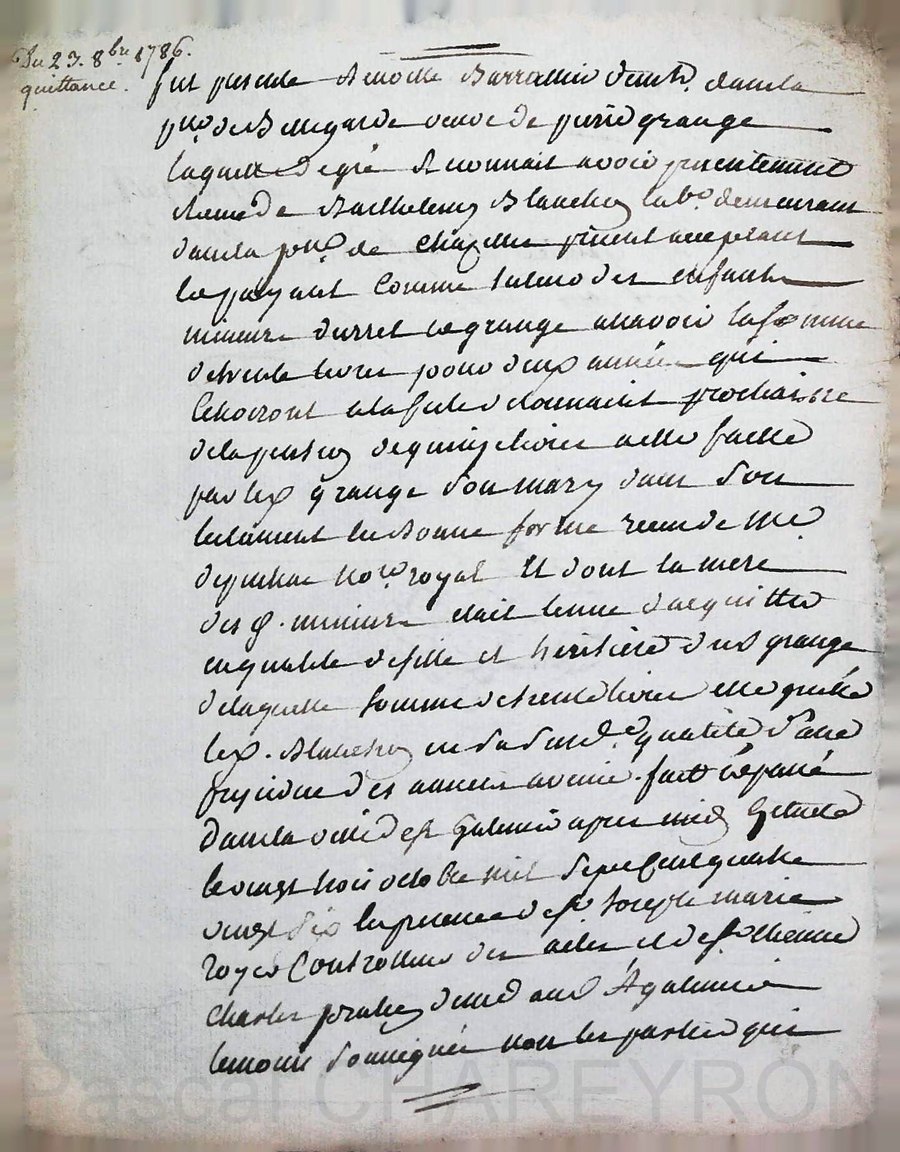 Du 23. 8bre 1786.
quittance.
fut presente Benoitte Barrallier demte. dans la
psse de Bellegarde veuve de pierre grange
laquelle de gré Reconnait avoir presentement
Receu de Barthelemy Blanchon labr. demeurant
dans la psse de Chazelles present acceptant
le payant Comme tuteur des enfants
mineurs dud. grange a savoir la somme
de trente livres pour deux années qui
Echoiront a la fete de toussaint prochaine
de la pension de quinze livres a elle faitte
par led grange Son mary dans Son
testament en Bonne forme recu de Me
nore royal Et dont la mere
des d. mineurs etait tenue d'acquitter
en qualité de fille et heritiere dud grange
de laquelle Somme de trente livres elle quitte
led. Blanchon en Sa Susde. qualité Sans
prejudice des années a venir. fait et passé
dans la ville de st Galmier apres midy Etude
le vingt trois octobre mil Sept Cent quatre
vingt Six En presence de sr Joseph marie
royer Controlleur des actes et de sr Etienne
Charles demt aud St galmier
temoins Soussignés non les parties qui
Pascal CHAREYRON